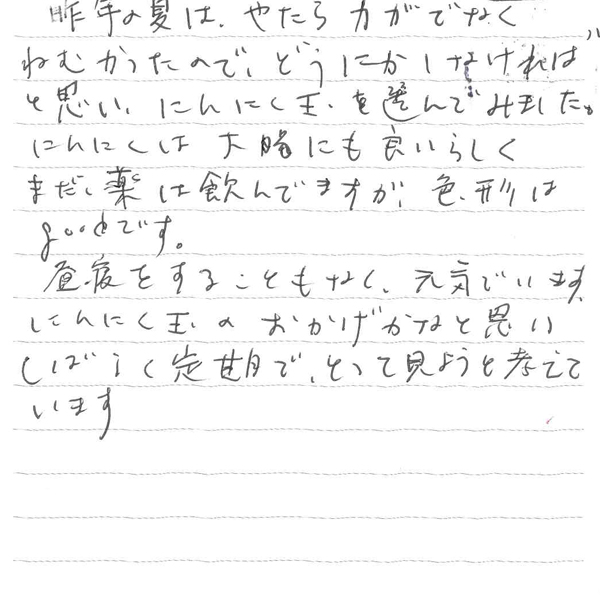 昨年の夏は、やたら力がでなく
ねむかったので、どうにかしなければ
と思い、にんにく玉を選んでみました。
にんにくは大腸にも良いらしく
まだ、薬は飲んでますが、色、形は
goodです。
昼寝をすることもなく、元気でいます、
にんにく玉のおかげかなと思い
しばらく定期で、とって見ようと考えて
います